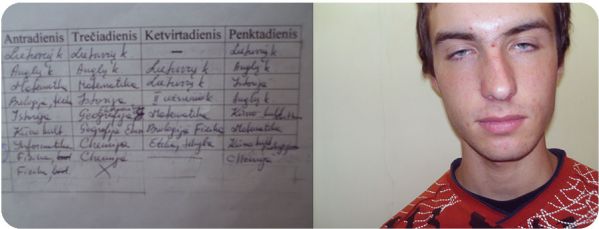 Antradienis Trečiadienis Ketvirtadienis Penktadienis
Lietuvių k Lietuvių k — Lietuvių k
Anglų k Anglų k Lietuvių k Anglų k
Matematika Matematika Lietuvių k Istorija
Istorija II užsienio k Anglų k
Istorija Geografija Matematika Kūno kult.
Kūno kult. Geografija Biologija Fizika Matematika
Informatika Chemija Etika, Kūno kult.
Fizika, Chemija Chemija
Fizika,